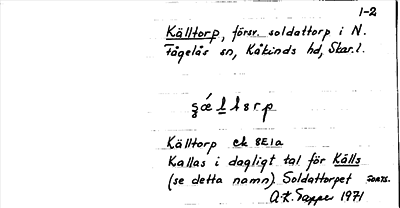 1-2
Källtorp, försv. soldattorp i N.
Fågelås sn, Kåkinds hd, Skar. l.
Källtorp ek 8E1a
Kallas i dagligt tal för Källs
(se detta namn). Soldattorpet
1971